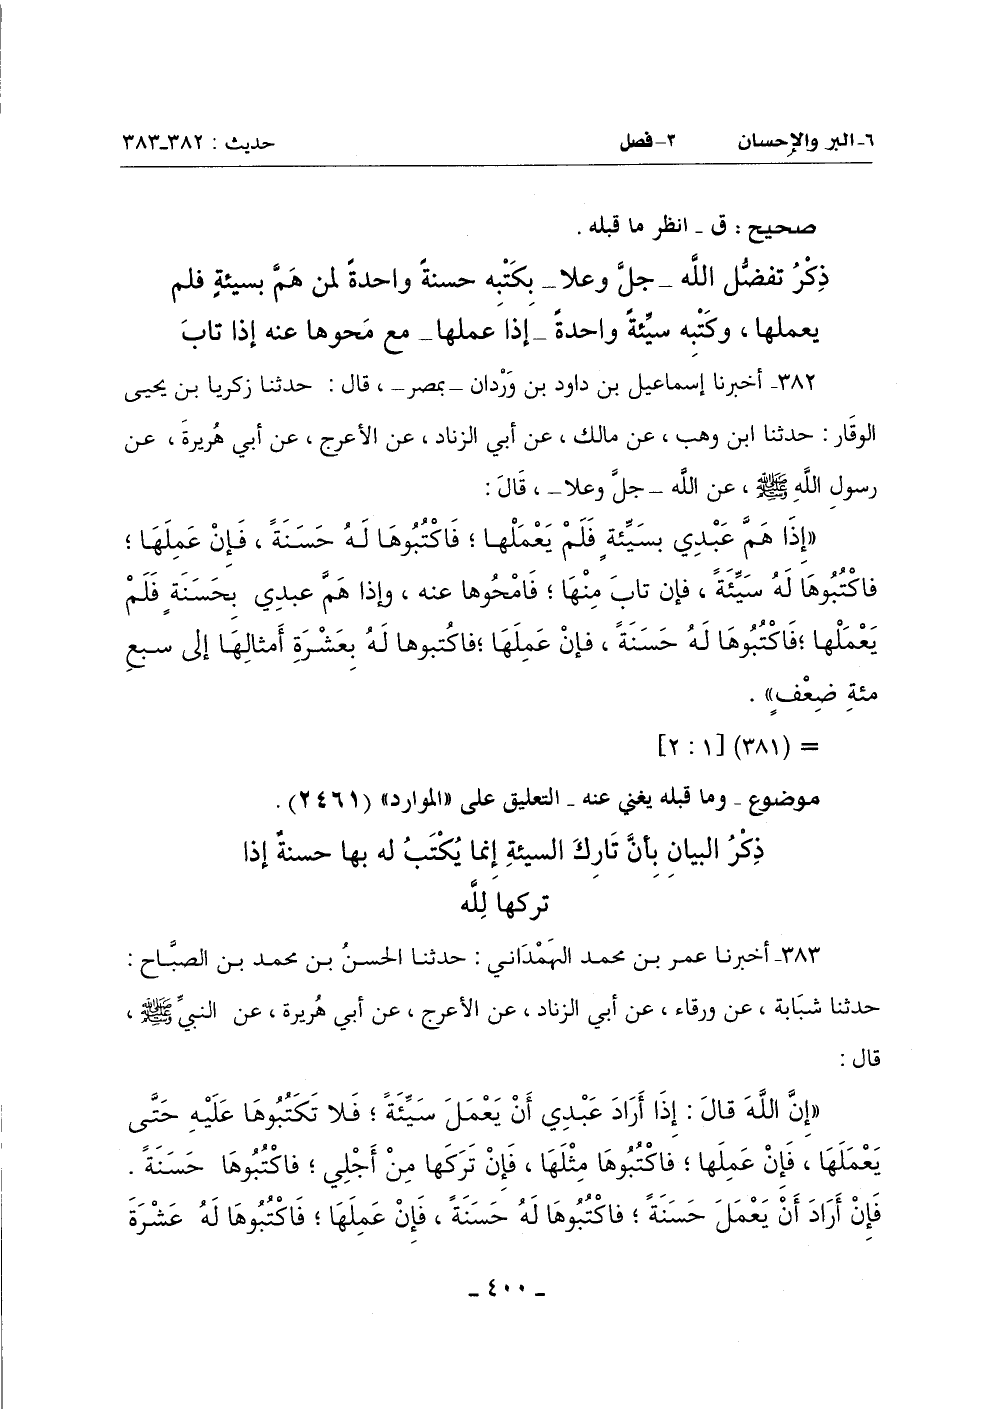 ٦- البر والإحسان ٢- فصل حديث : ٣٨٢-٣٨٣
صحيح : ق - انظر ما قبله .
ذِكْرُ تفضُّل اللَّه -جلَّ وعلا- بِكَتْبِه حسنةً واحدةً لمن هَمَّ بسيئةٍ فلم
يعملها ، وكَتْبِه سيِّئةً واحدةً -إذا عملها- مع مَحوها عنه إذا تابَ
٣٨٢- أخبرنا إسماعيل بن داود بن وَرْدان -بمصر- ، قال : حدثنا زكريا بن يحيى
الوقَار : حدثنا ابن وهب ، عن مالك ، عن أبي الزناد ، عن الأعرج ، عن أبي هُريرةَ ، عن
رسولِ اللَّهِ ﷺ ، عن اللَّه -جلَّ وعلا- ، قَالَ :
«إِذَا هَمَّ عَبْدِي بسَيِّئةٍ فَلَمْ يَعْمَلْها ؛ فَاكْتُبُوهَا لَهُ حَسَنَةً ، فَإِنْ عَمِلَهَا ؛
فاكْتُبُوهَا لَهُ سَيِّئَةً ، فإن تابَ مِنْهَا ؛ فَامْحُوها عنه ، وإذا هَمَّ عبدِي بِحَسَنَةٍ فَلَمْ
يَعْمَلْها ؛فَاكْتُبُوهَا لَهُ حَسَنَةً ، فإنْ عَمِلَهَا ؛فاكُتبوها لَهُ بِعَشْرَةِ أمثالِهَا إلى سبعِ
مئةِ ضِعْفٍ» .
= (٣٨١) [١ : ٢]
موضوع - وما قبله يغني عنه - التعليق على «الموارد» (٢٤٦١) .
ذِكْرُ البيانِ بِأنَّ تَارِكَ السيئةِ إنما يُكْتَبُ له بها حسنةٌ إذا
تركها لِلَّه
٣٨٣- أخبرنا عمر بن محمد الهَمْدَاني : حدثنا الحسنُ بن محمد بن الصبَّاح :
حدثنا شبَابة ، عن ورقاء ، عن أبي الزناد ، عن الأعرج ، عن أبي هُريرة ، عن النبيِّ ﷺ ،
قال :
«إِنَّ اللَّهَ قالَ : إِذَا أَرَادَ عَبْدِي أَنْ يَعْمَلَ سَيِّئَةً ؛ فَلا تَكتُبُوهَا عَلَيْهِ حَتَّى
يَعْمَلَهَا ، فَإِنْ عَمِلَها ؛ فاكْتُبُوهَا مِثْلَهَا ، فَإِنْ تَرَكَها مِنْ أَجْلِي ؛ فاكْتُبُوهَا حَسَنَةً .
فَإِنْ أَرَادَ أَنْ يَعْمَلَ حَسَنَةً ؛ فاكْتُبُوهَا لَهُ حَسَنَةً ، فَإِنْ عَمِلَهَا ؛ فَاكْتُبُوهَا لَهُ عَشْرَةَ
- ٤٠٠ -